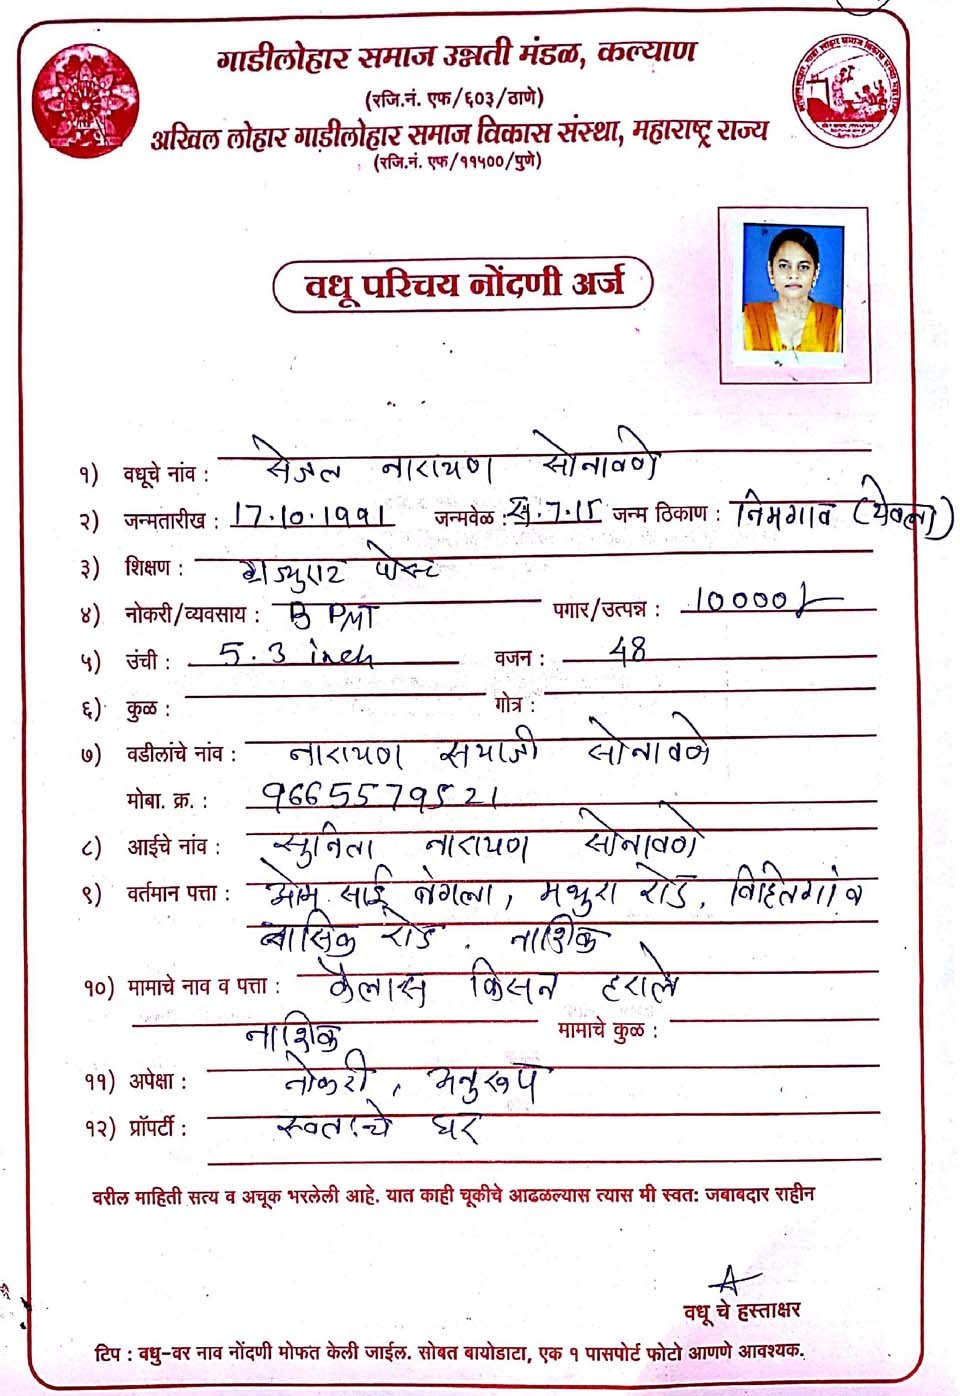 गाडीलोहार समाज उन्नती मंडळ, कल्याण
(रजि.नं. एफ/६०३/ठाणे)
अखिल लोहार गाडीलोहार समाज विकास संस्था, महाराष्ट्र राज्य
(रजि.नं. एफ/११५००/पुणे)
वधू परिचय नोंदणी अर्ज
१) वधूचे नांव : सेजल नारायण सोनावणे
२) जन्मतारीख : 17.10.1991 जन्मवेळ : स.7.15 जन्म ठिकाण : निमगाव (येवला)
३) शिक्षण : ग्रॅज्युएट
४) नोकरी/व्यवसाय : B PMT पगार/उत्पन्न : 10000/-
५) उंची : 5.3 inch वजन : 48
६) कुळ : गोत्र :
७) वडीलांचे नांव : नारायण सयाजी सोनावणे
मोबा. क्र. : 9665579521
८) आईचे नांव : सुनिता नारायण सोनावणे
९) वर्तमान पत्ता : ओम साई बंगला, मथुरा रोड, विहितगांव
नासिक रोड. नाशिक
१०) मामाचे नाव व पत्ता : कैलास किसन हराले
नाशिक मामाचे कुळ :
११) अपेक्षा : नोकरी, अनुरूप
१२) प्रॉपर्टी : स्वतःचे घर
वरील माहिती सत्य व अचूक भरलेली आहे. यात काही चूकीचे आढळल्यास त्यास मी स्वत: जबाबदार राहीन
वधू चे हस्ताक्षर
टिप : वधु-वर नाव नोंदणी मोफत केली जाईल. सोबत बायोडाटा, एक १ पासपोर्ट फोटो आणणे आवश्यक.